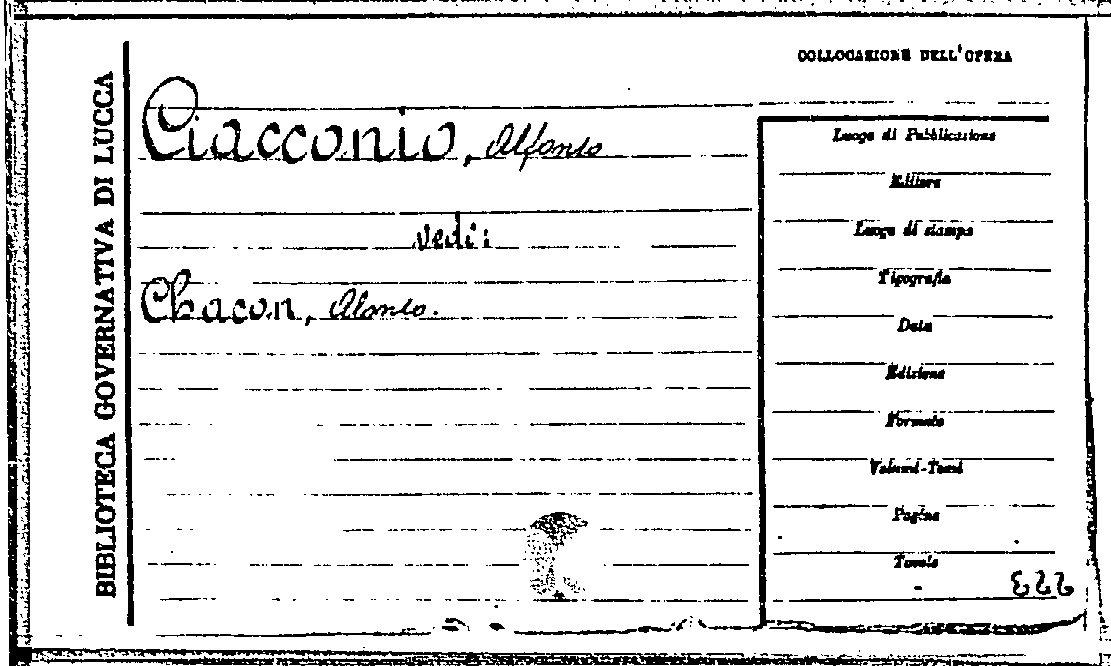 BIBLIOTECA GOVERNATIVA DI LUCCA
COLLOCAZIONE DELL'OPERA
Ciacconio, Alfonso
vedi:
Chacon, Alonso.
Luogo di Pubblicazione
Editore
Luogo di stampa
Tipografia
Data
Edizione
Formato
Volumi-Tomi
Pagine
Tavole